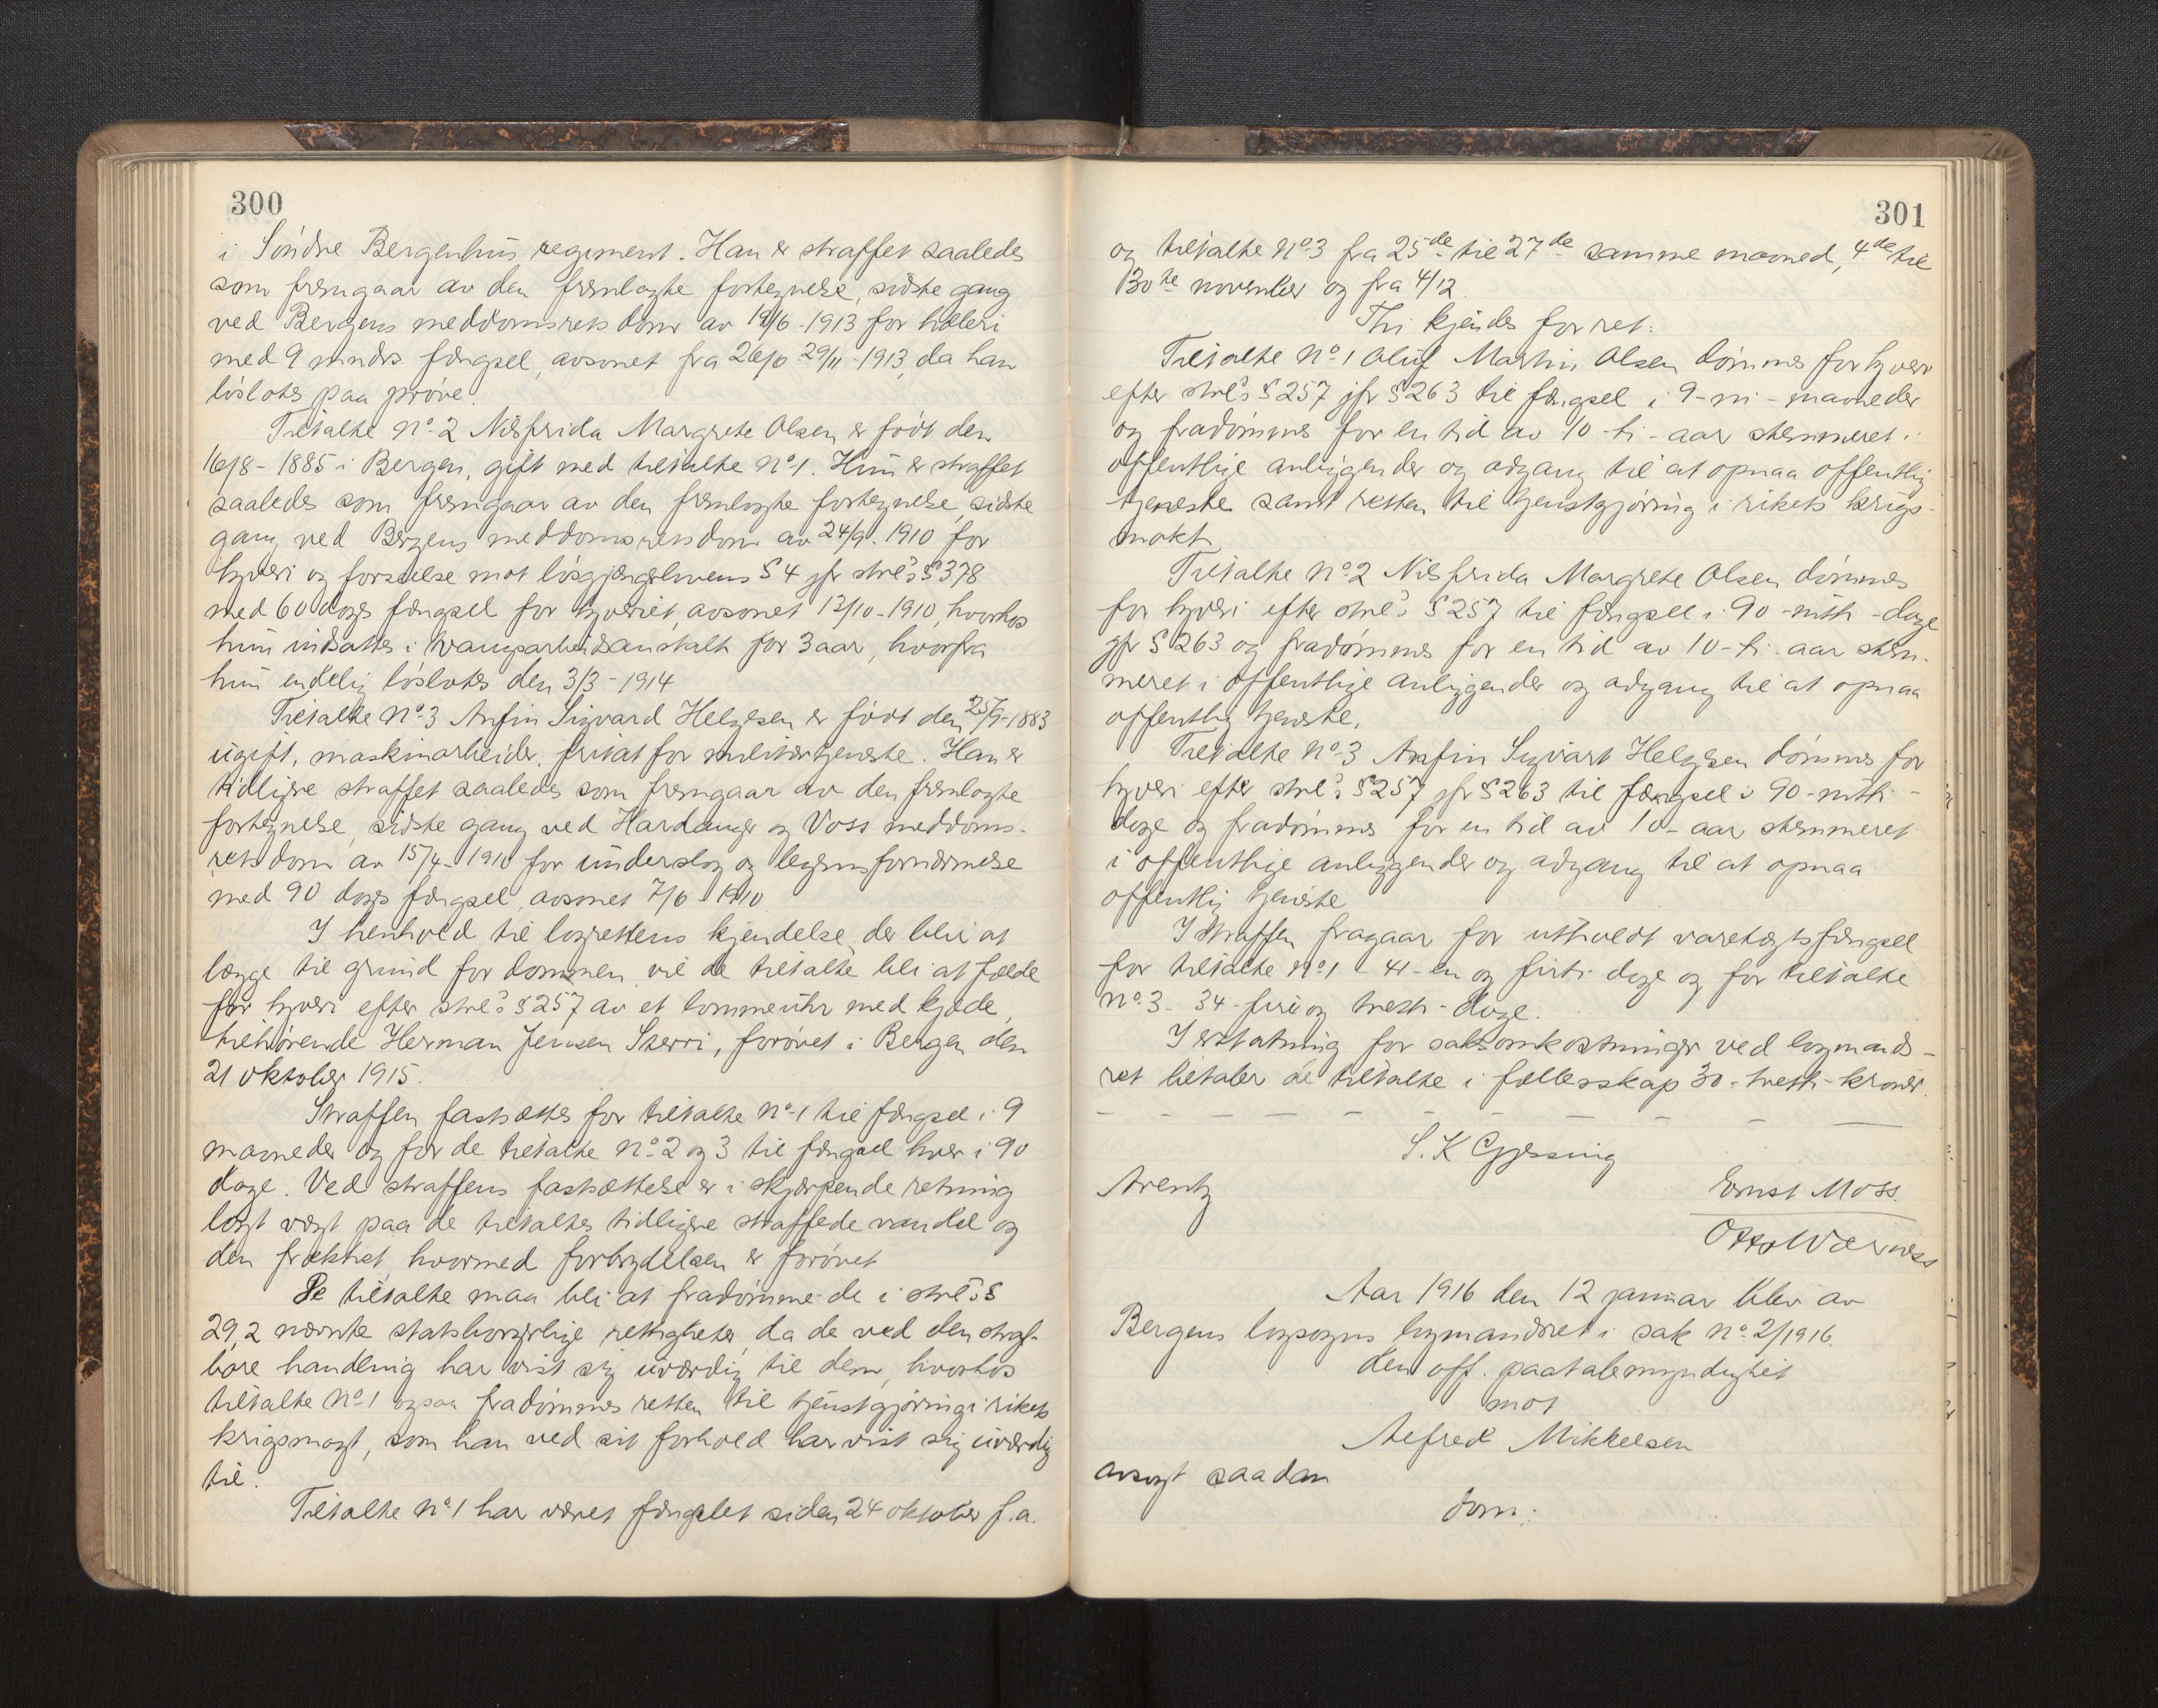 300
i Söndre Bergenhus regiment. Han er straffet saaledes
som fremgaar av den fremlagte fortegnelse, sidste gang
ved Bergens meddomsrets dom av 19/6-1913 for hæleri
med 9 mndrs fængsel, avsonet fra 29/11-1913, da han
löslotes paa pröve.
Tiltalte No 2 Nilsfrida Margrete Olsen er födt den
16/8-1885 i Bergen, gift med tiltalte No 1. Hun er straffet
saaledes som fremgaar av den fremlagte fortegnelse, sidste
gang ved Bergens meddomsrets dom av 24/9-1910 for
tyveri og forseelse mot lösgjængerlovens § 4 jfr strl's § 378
med 60 dags fængsel for tyveriet, avsonet 13/10-1910, hvorhos
hun indsattes i tvangsarbeidsanstalt for 3 aar, hvorfra
hun endelig löslotes den 3/3-1914
Tiltalte No 3 Anfin Sigvard Helgesen er födt den 25/9-1883
ugift, maskinarbeider, fritat for militærtjeneste. Han er
tidligere straffet saaledes som fremgaar av den fremlagte
fortegnelse, sidste gang ved Hardanger og Voss meddoms-
rets dom av 15/4-1910 for underslag og legemsfornærmelse
med 90 dags fængsel, avsonet 7/6-1910.
I henhold til lagrettens kjendelse, der blir at
lægge til grund for dommen, vil de tiltalte bli at fælde
for tyveri efter strl's § 257 av et lommeuhr med kjæde,
tilhörende Herman Jensen Skerri, forövet i Bergen den
21 oktober 1915.
Straffen fastsættes for tiltalte No 1 til fængsel i 9
maaneder og for de tiltalte No 2 og 3 til fængsel hver i 90
dage. Ved straffens fastsættelse er i skjærpende retning
lagt vægt paa de tiltaltes tidligere straffede vandel og
den frækhet hvormed forbrydelsen er forövet
De tiltalte maa bli at fradömme de i strl's §
29,2 nævnte statsborgerlige rettigheter, da de ved den straf-
bare handling har vist sig uværdig til dem, hvorhos
tiltalte No 1 ogsaa fradömmes retten til tjenstgjöring i rikets
krigsmagt, som han ved sit forhold har vist sig uværdig
til.
Tiltalte No 1 har været fængslet siden 24 oktober f.a.
301
og tiltalte No 3 fra 25de til 27de samme maaned, 4de til
30te november og fra 4/12.
Thi kjendes for ret:
Tiltalte No 1 Oluf Martin Olsen dömmes for tyveri
efter strl's § 257 jfr § 263 til fængsel i 9-ni-maaneder
og fradömmes for en tid av 10-ti-aar stemmeret i
offentlige anliggender og adgang til at opnaa offentlig
tjeneste samt retten til tjenstgjöring i rikets krigs-
makt
Tiltalte No 2 Nilsfrida Margrete Olsen dömmes
for tyveri efter strl's § 257 til fængsel i 90-nitti-dage
jfr § 263 og fradömmes for en tid av 10-ti-aar stem-
meret i offentlige anliggender og adgang til at opnaa
offentlig tjeneste.
Tiltalte No 3 Anfin Sigvart Helgesen dömmes for
tyveri efter strl's § 257 jfr § 263 til fængsel i 90-nitti-
dage og fradömmes for en tid av 10-aar stemmeret
i offentlige anliggender og adgang til at opnaa
offentlig tjeneste
I straffen fragaar for utholdt varetægtsfængsel
for tiltalte No 1 - 41-en og firti-dage og for tiltalte
No 3 - 34-fire og tretti-dage.
I erstatning for saksomkostninger ved lagmands-
ret betaler de tiltalte i fællesskap 30-tretti-kroner.
S. K Gjessing
Arentz
Ernst Moss.
Otto Wærness
Aar 1916 den 12 januar blev av
Bergens lagsogns lagmandsret i sak No 2/1916.
den off. paatalemyndighet
mot
Alfred Mikkelsen
avsagt saadan
dom: